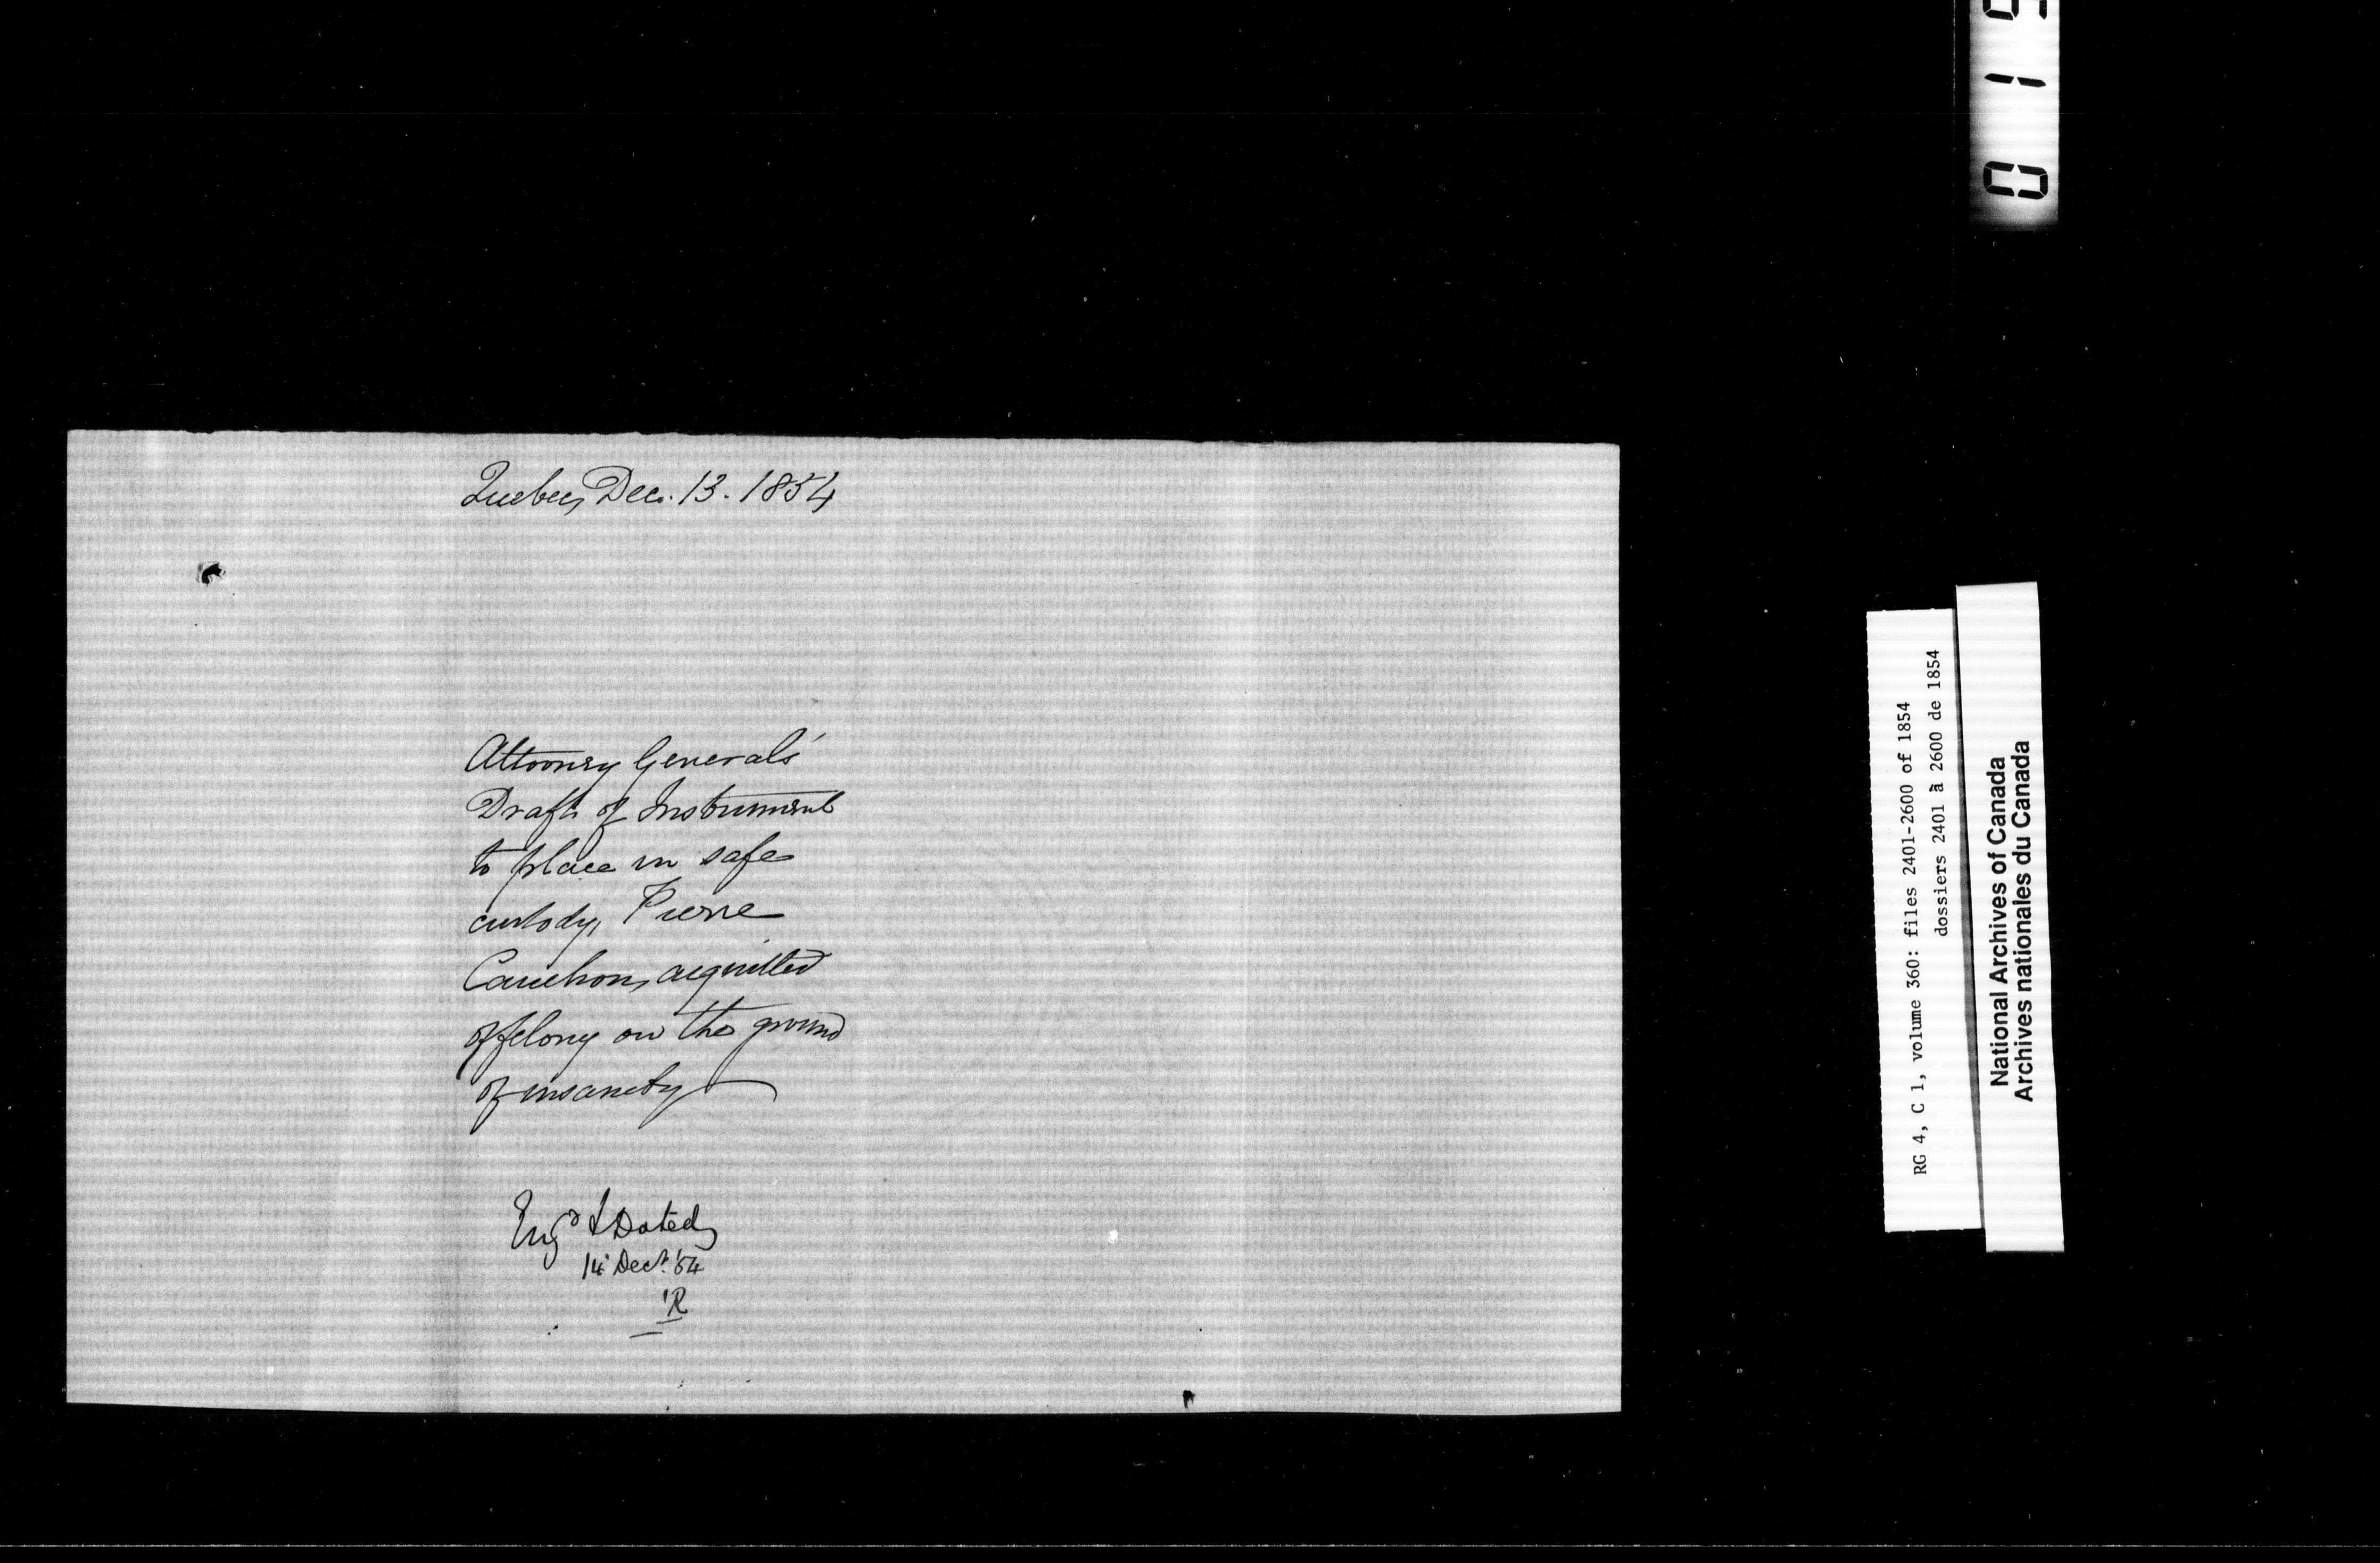 Quebec, Dec. 13. 1854
Attorney Generals'
Draft of Instrument
to place in safe
custody, Pierre
Cauchon, acquitted
of felony on the ground
of insanity
Eng^d & Dated
14 Dec^r. '54
R
RG 4, C 1, volume 360: files 2401-2600 of 1854
dossiers 2401 à 2600 de 1854
National Archives of Canada
Archives nationales du Canada
0 1 9